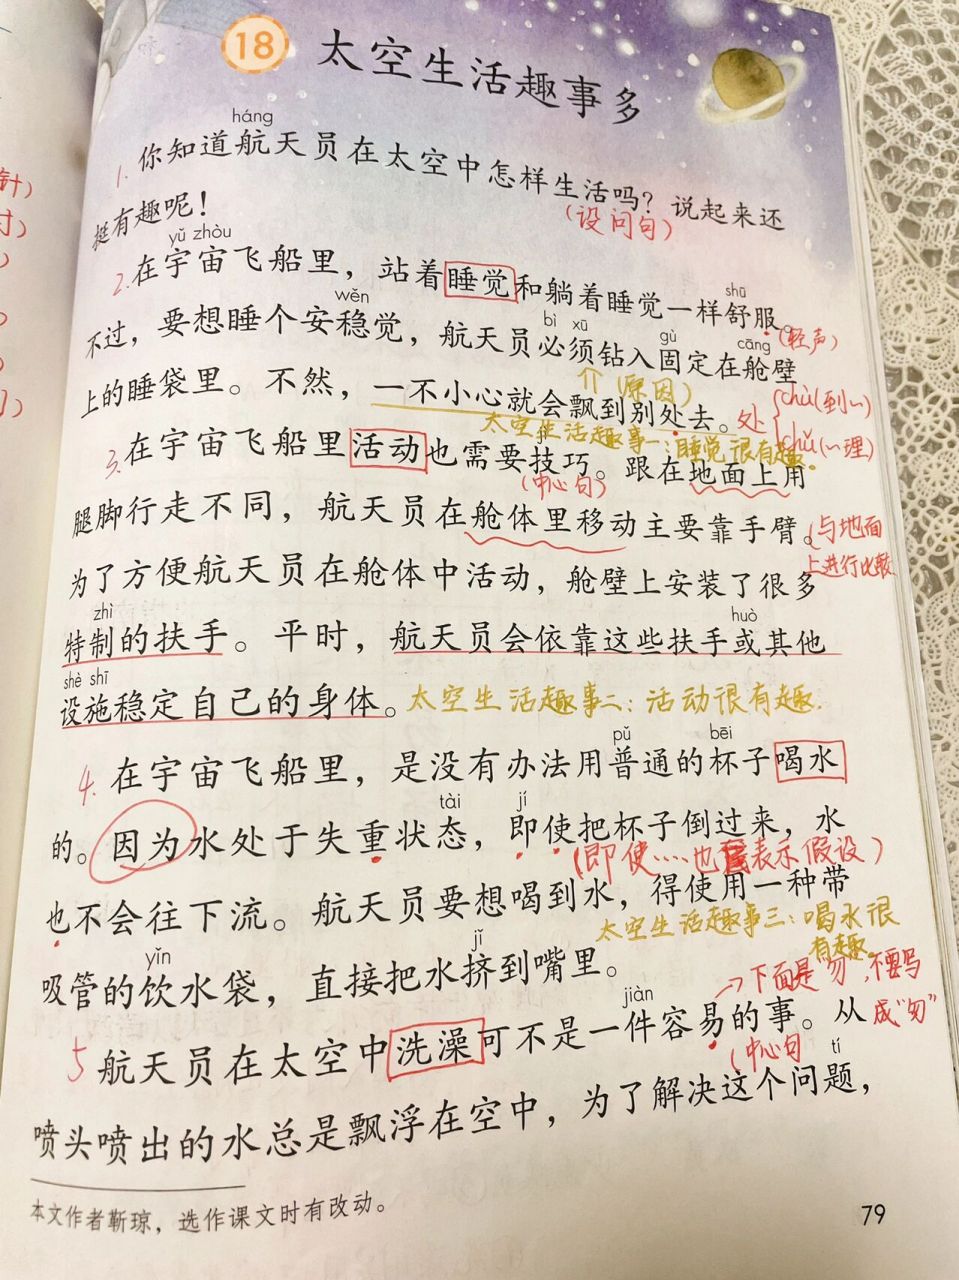 18 太空生活趣事多
háng
1. 你知道航天员在太空中怎样生活吗？说起来还
(设问句)
挺有趣呢！
yǔ zhòu
2. 在宇宙飞船里，站着睡觉和躺着睡觉一样舒服。
wěn shū
(轻声)
不过，要想睡个安稳觉，航天员必须钻入固定在舱壁
bì xū gù cāng
上的睡袋里。不然，一不小心就会飘到别处去。
(原因)
处 chù(到处) chǔ(处理)
太空生活趣事一：睡觉很有趣。
3. 在宇宙飞船里活动也需要技巧。跟在地面上用
jì
(中心句)
腿脚行走不同，航天员在舱体里移动主要靠手臂。
(与地面
上进行比较
为了方便航天员在舱体中活动，舱壁上安装了很多
zhì huò
特制的扶手。平时，航天员会依靠这些扶手或其他
shè shī
设施稳定自己的身体。 太空生活趣事二：活动很有趣.
pǔ bēi
4. 在宇宙飞船里，是没有办法用普通的杯子喝水
tài jí
的。因为水处于失重状态，即使把杯子倒过来，水
(即使……也 表示假设)
也不会往下流。航天员要想喝到水，得使用一种带
太空生活趣事三：喝水很
有趣。
yǐn jǐ
吸管的饮水袋，直接把水挤到嘴里。
→下面是“勿”，不要写
成“匆”
jiàn
5 航天员在太空中洗澡可不是一件容易的事。从
(中心句
tí
喷头喷出的水总是飘浮在空中，为了解决这个问题，
本文作者靳琼，选作课文时有改动。
79